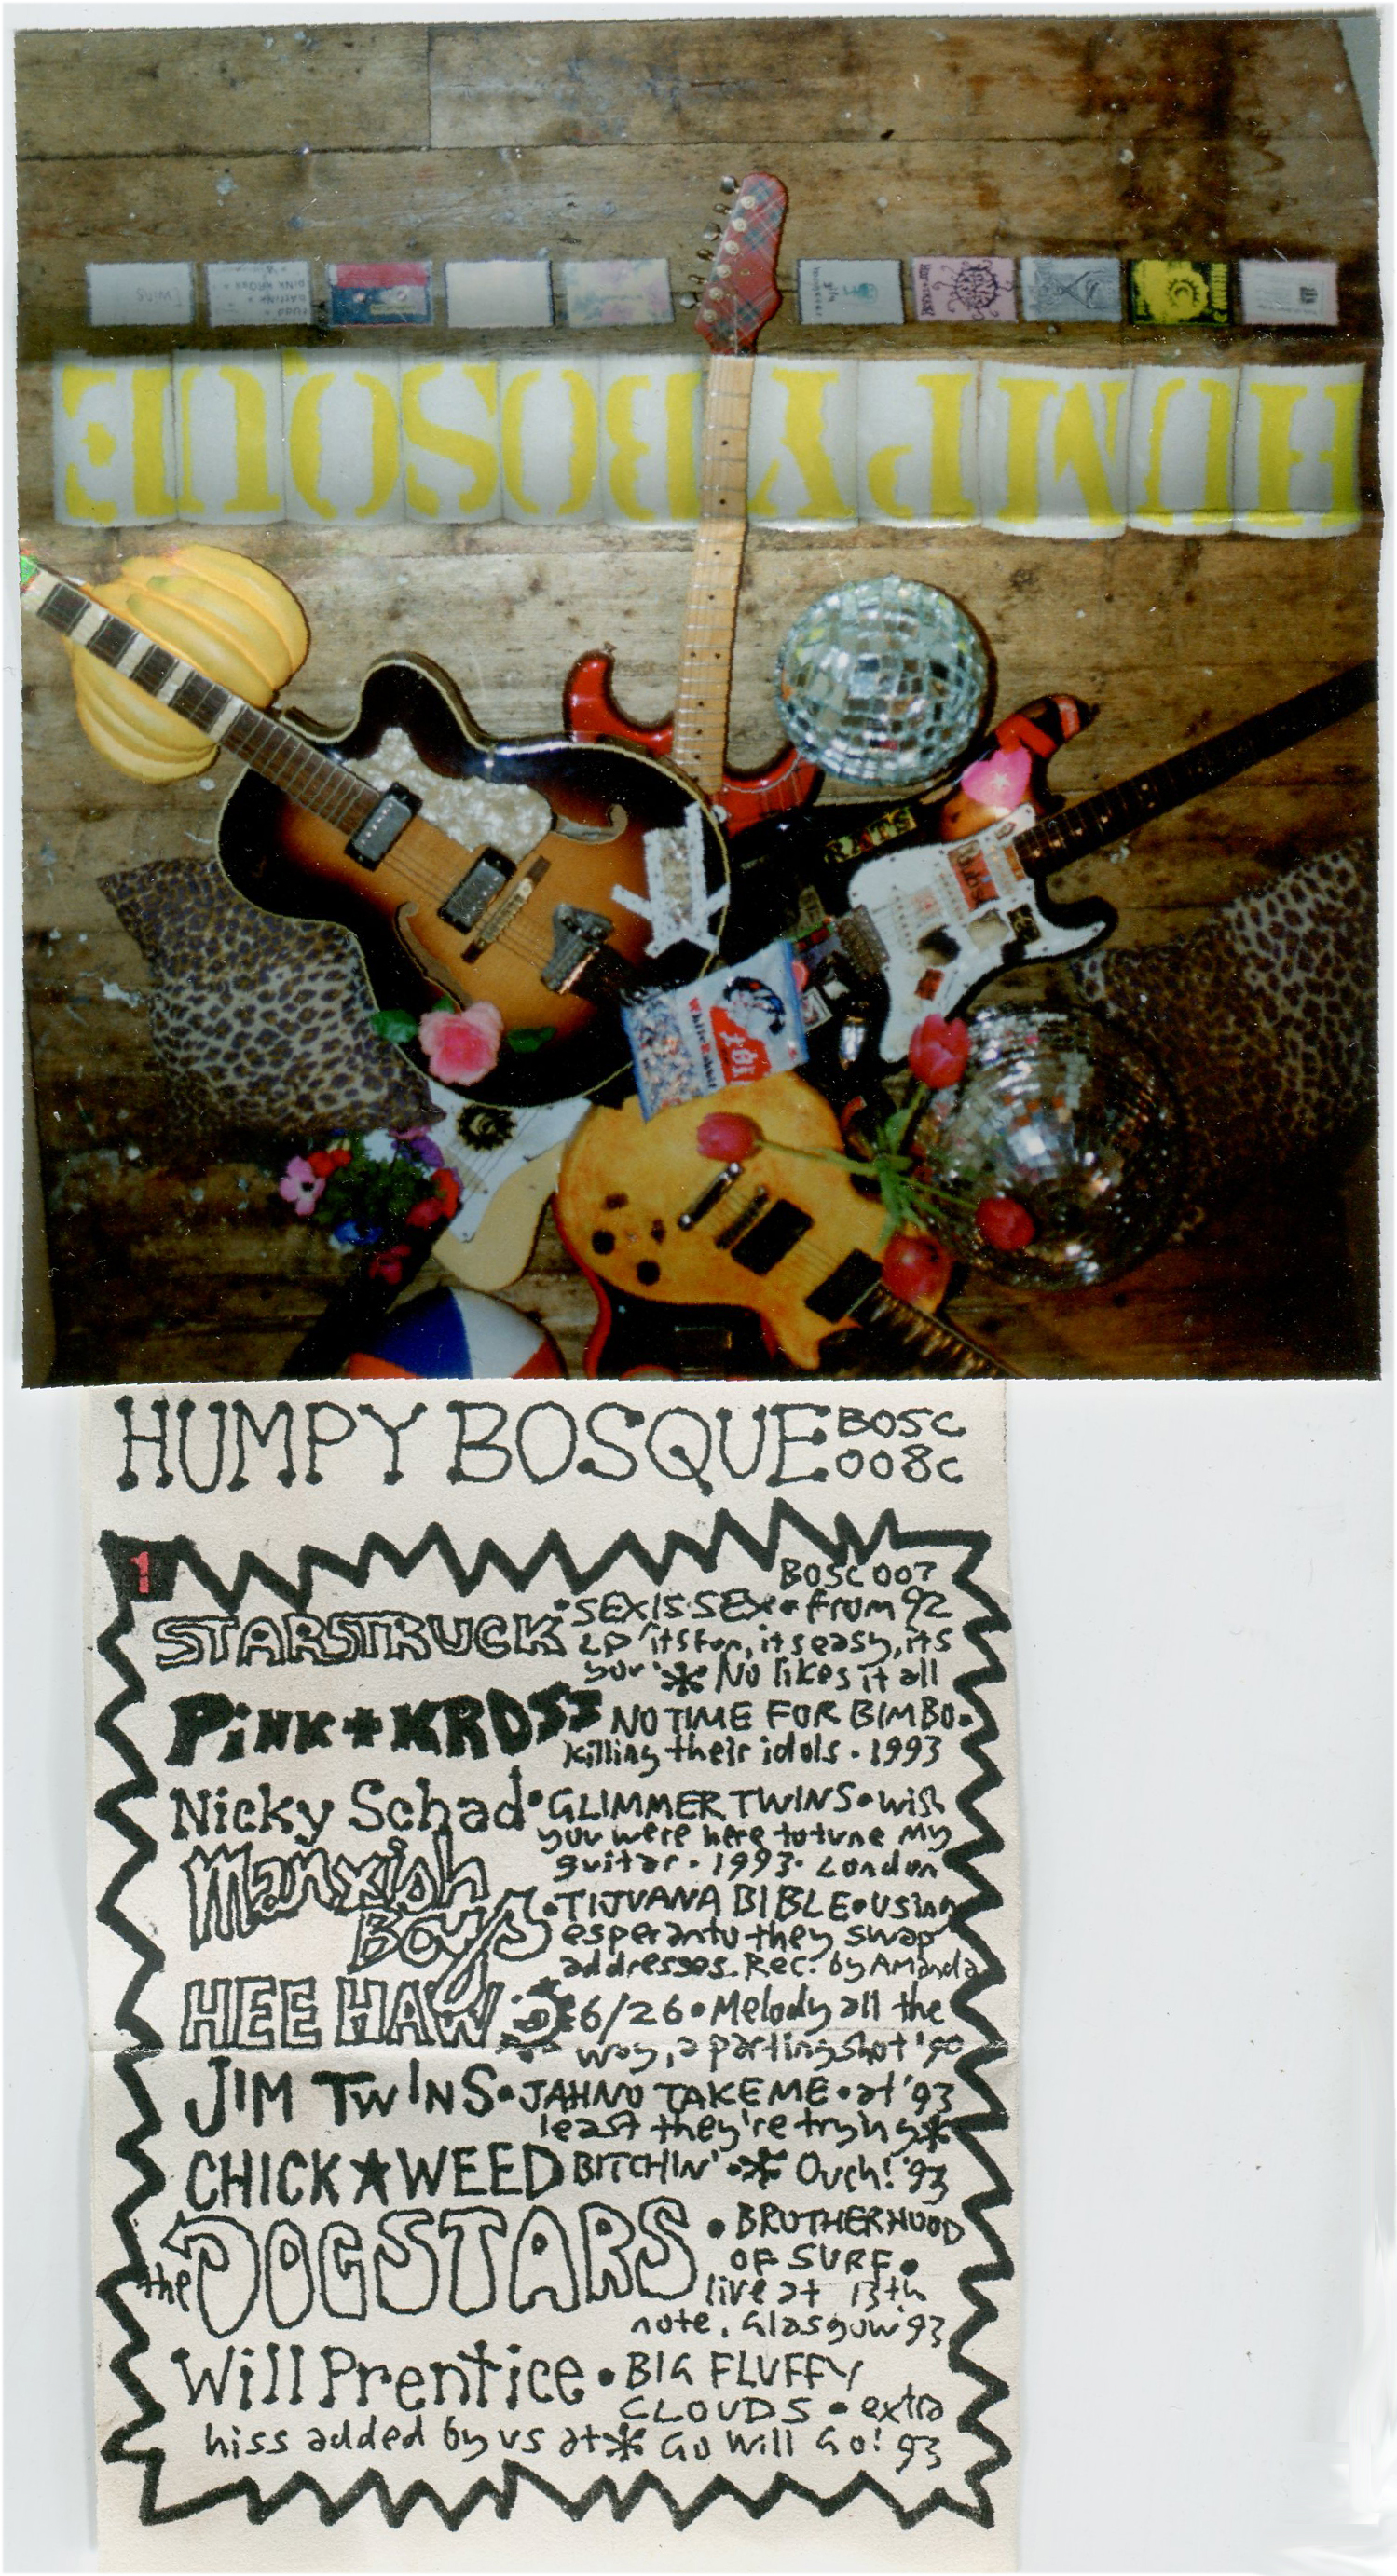 HUMPY BOSQUE
RATS
Bubs
White Rabbit
HUMPY BOSQUE BOSC
008c
1
BOSC 007
STARSTRUCK • SEX IS SEX • from 92
LP 'its fun, it seasy, its
your' * No likes it all
PiNK + KROSS NO TIME FOR BIMBO •
killing their idols • 1993
Nicky Schad • GLIMMER TWINS • wish
you were here to tune my
guitar • 1993 • London
Manxish
Boys • TIJUANA BIBLE • using
esperanto they swap
addresses. Rec. by Amanda
HEE HAW 6/26 • Melody all the
way, a parting shot '90
JIM TWINS • JAHNO TAKE ME • at '93
least they're trying *
CHICK ★ WEED BITCHIN' • * Ouch! '93
the DOGSTARS • BROTHERHOOD
OF SURF •
live at 13th
note, Glasgow '93
Will Prentice • BIG FLUFFY
CLOUDS • extra
hiss added by us at * Go Will Go! 93